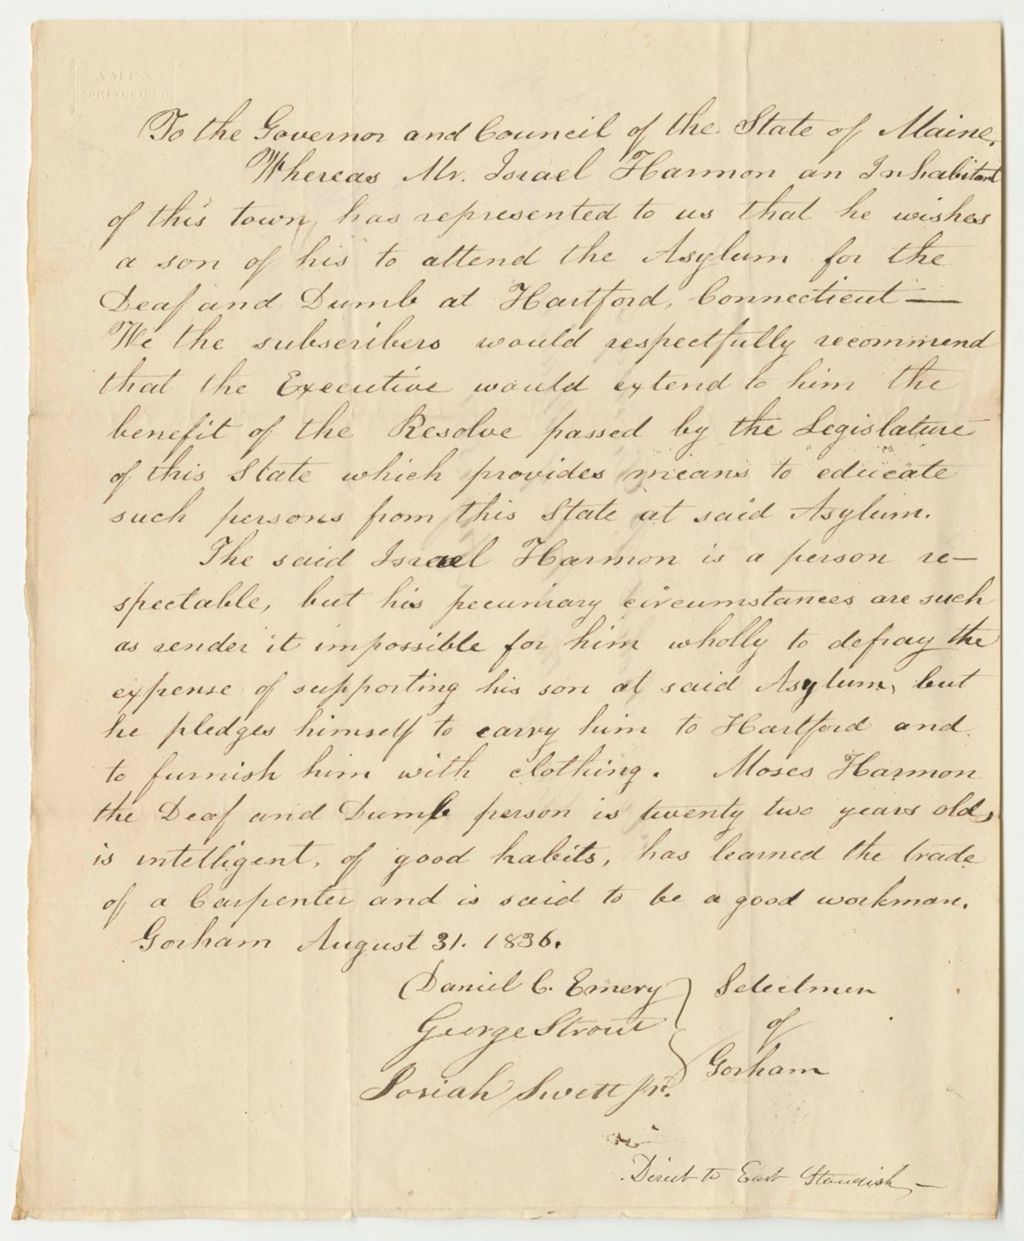 AMES
SPRINGFIELD
To the Governor and Council of the State of Maine,
Whereas Mr. Israel Harmon an Inhabitant
of this town, has represented to us that he wishes
a son of his to attend the Asylum for the
Deaf and Dumb at Hartford, Connecticut —
We the subscribers would respectfully recommend
that the Executive would extend to him the
benefit of the Resolve passed by the Legislature
of this State which provides means to educate
such persons from this State at said Asylum.
The said Israel Harmon is a person re-
spectable, but his pecuniary circumstances are such
as render it impossible for him wholly to defray the
expense of supporting his son at said Asylum, but
he pledges himself to carry him to Hartford and
to furnish him with clothing. Moses Harmon
the Deaf and Dumb person is twenty two years old,
is intelligent, of good habits, has learned the trade
of a Carpenter and is said to be a good workman.
Gorham August 31. 1836.
Daniel C. Emery } Selectmen
George Strout of
Josiah Swett Jr. Gorham
Direct to East Standish —